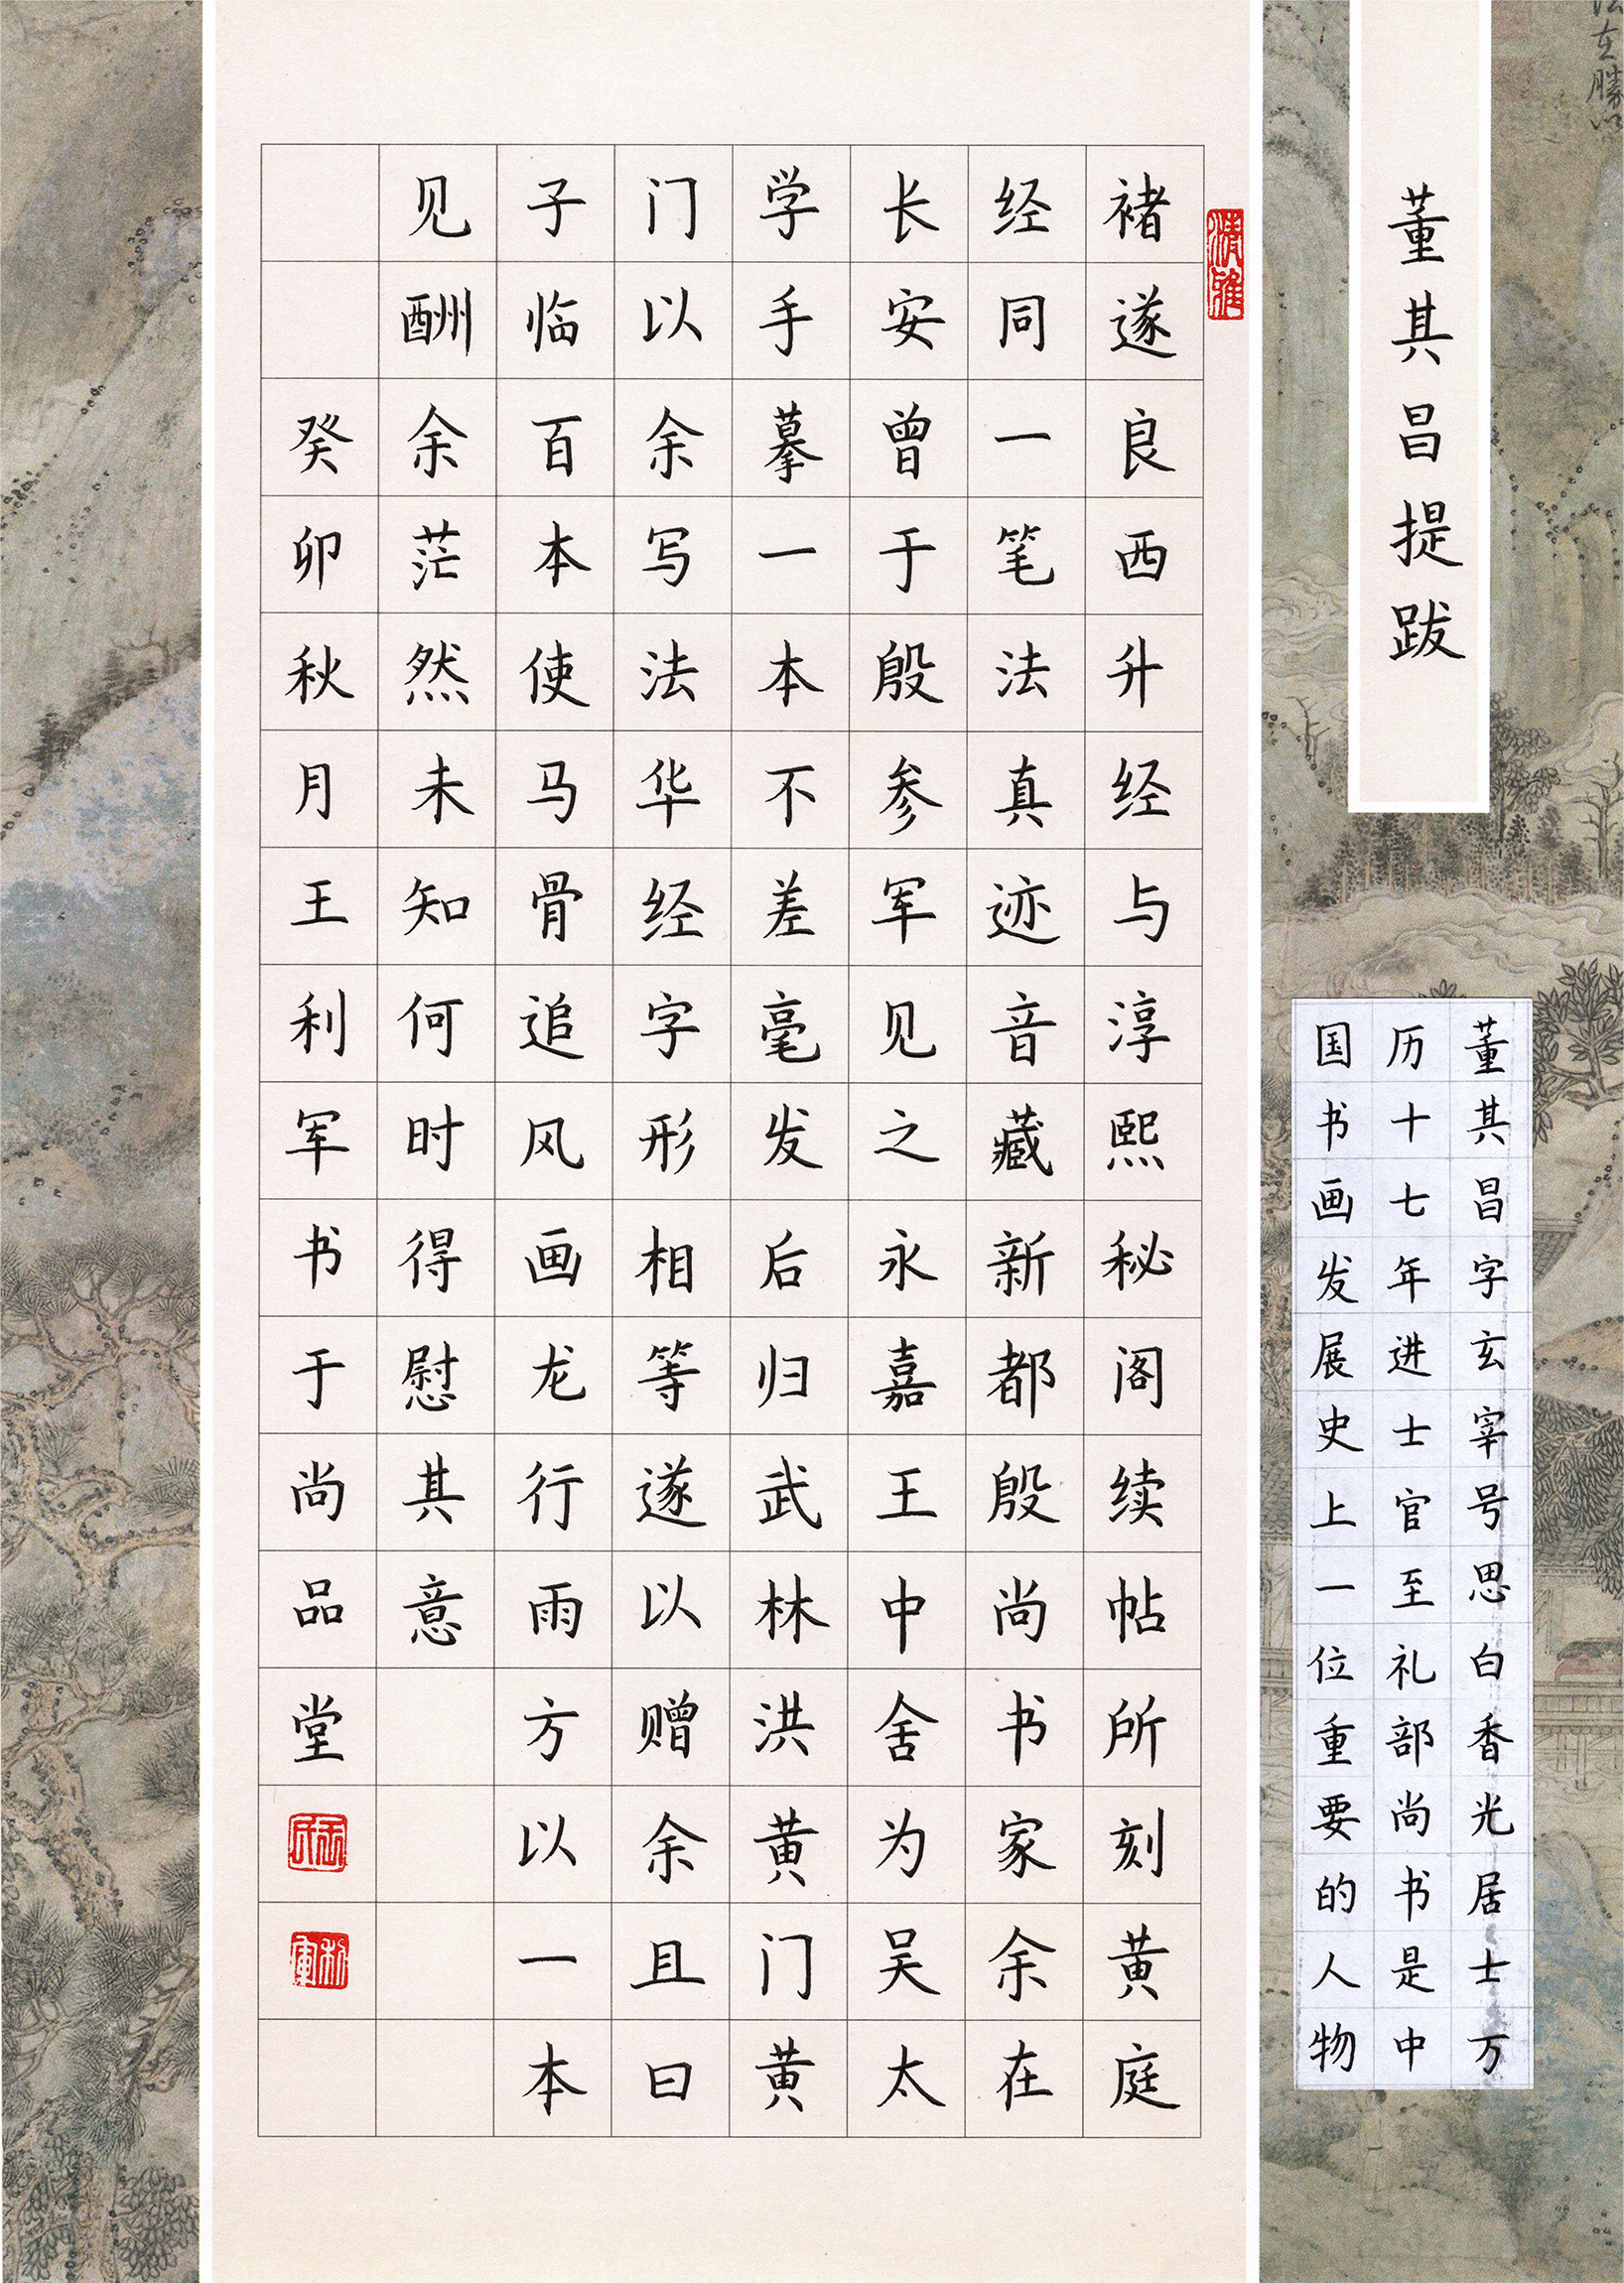 董其昌提跋
褚遂良西升经与淳熙秘阁续帖所刻黄庭
经同一笔法真迹音藏新都殷尚书家余在
长安曾于殷参军见之永嘉王中舍为吴太
学手摹一本不差毫发后归武林洪黄门黄
门以余写法华经字形相等遂以赠余且曰
子临百本使马骨追风画龙行雨方以一本
见酬余茫然未知何时得慰其意
癸卯秋月王利军书于尚品堂
董其昌字玄宰号思白香光居士万
历十七年进士官至礼部尚书是中
国书画发展史上一位重要的人物
清雅
王氏
利军